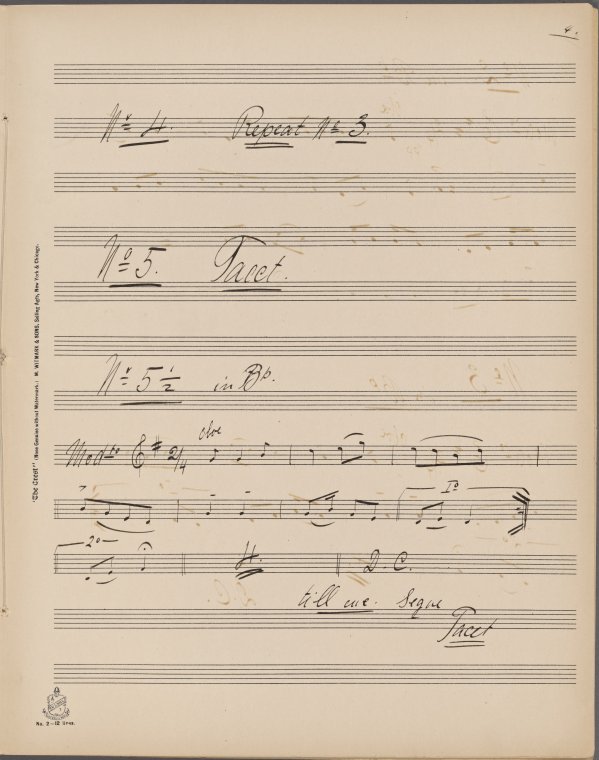 4.
No 4. Repeat No 3.
No 5. Tacet.
No 5 1/2 in Bb.
Modto 2/4
Io
2o 4. D. C.
till cue. Segue
Tacet
"The Crest" (None Genuine without Watermark.) M. WITMARK & SONS, Selling Agts, New York & Chicago.
No. 2—12 lines.